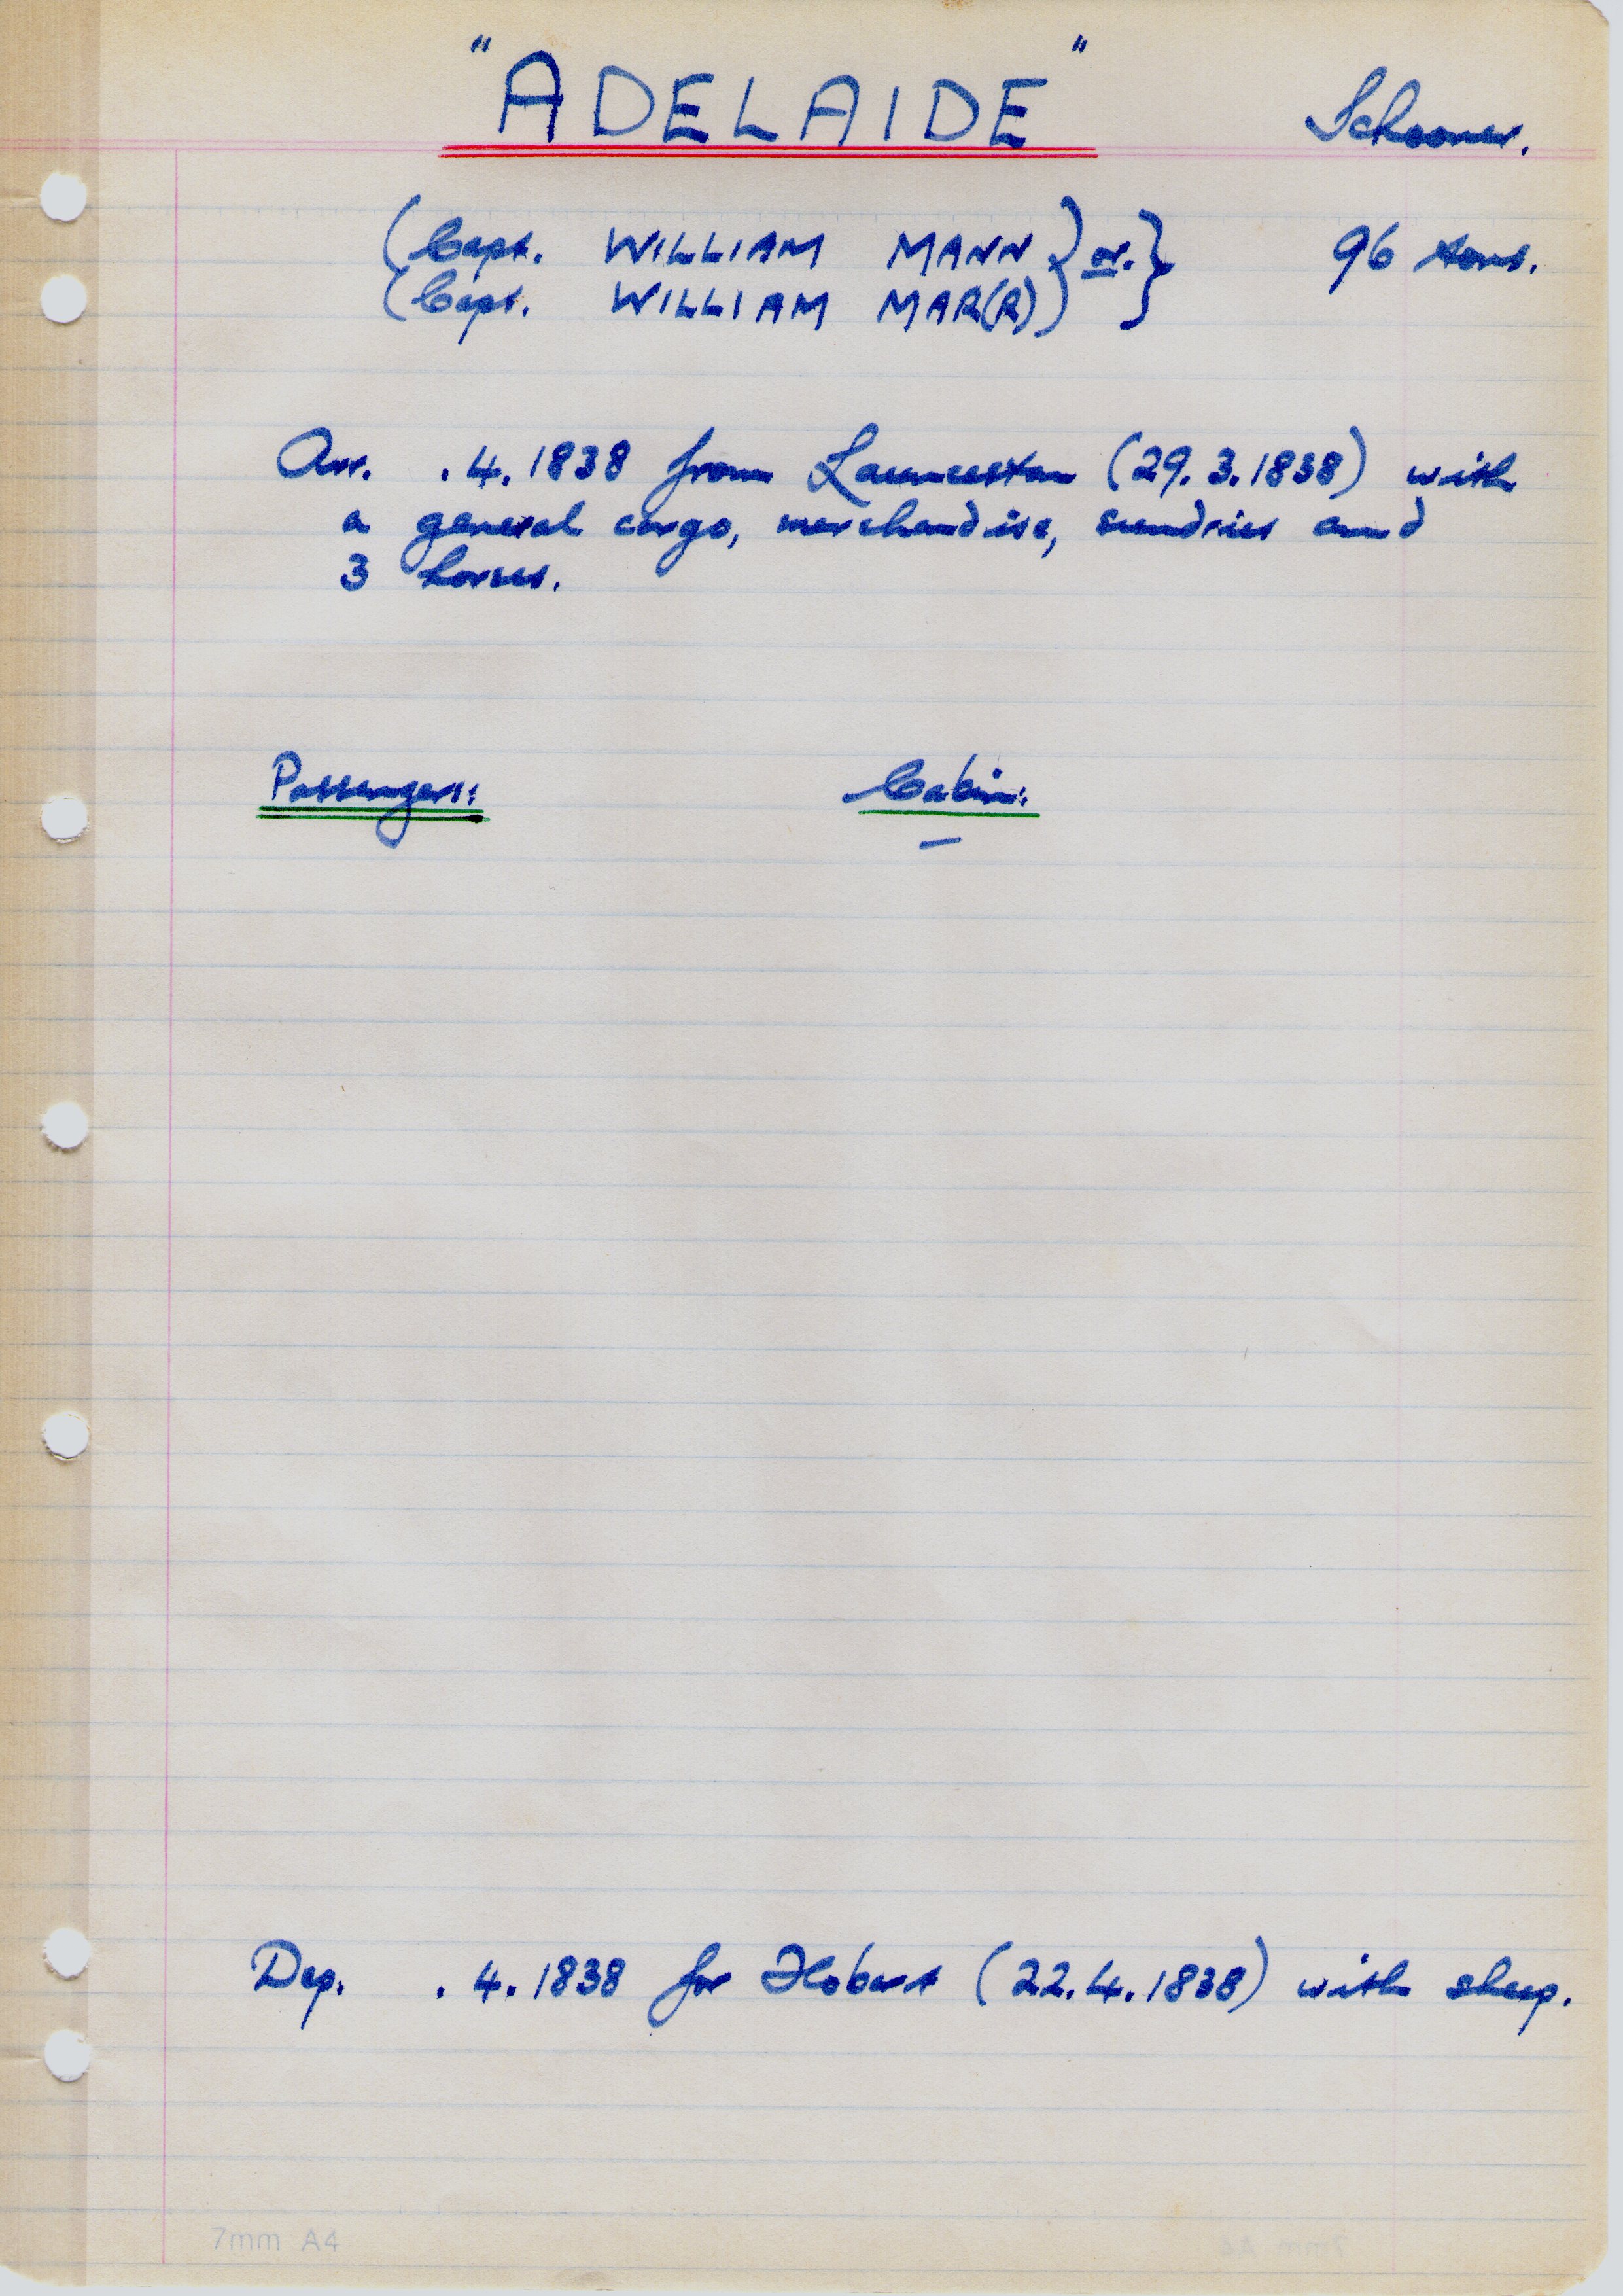 "ADELAIDE" Schooner.
(Capt. WILLIAM MANN } or. } 96 tons.
(Capt. WILLIAM MAR(R) )
Arr. .4.1838 from Launceston (29.3.1838) with
a general cargo, merchandise, sundries and
3 horses.
Passengers: Cabin:
—
Dep. .4.1838 for Hobart (22.4.1838) with sheep.
7mm A4